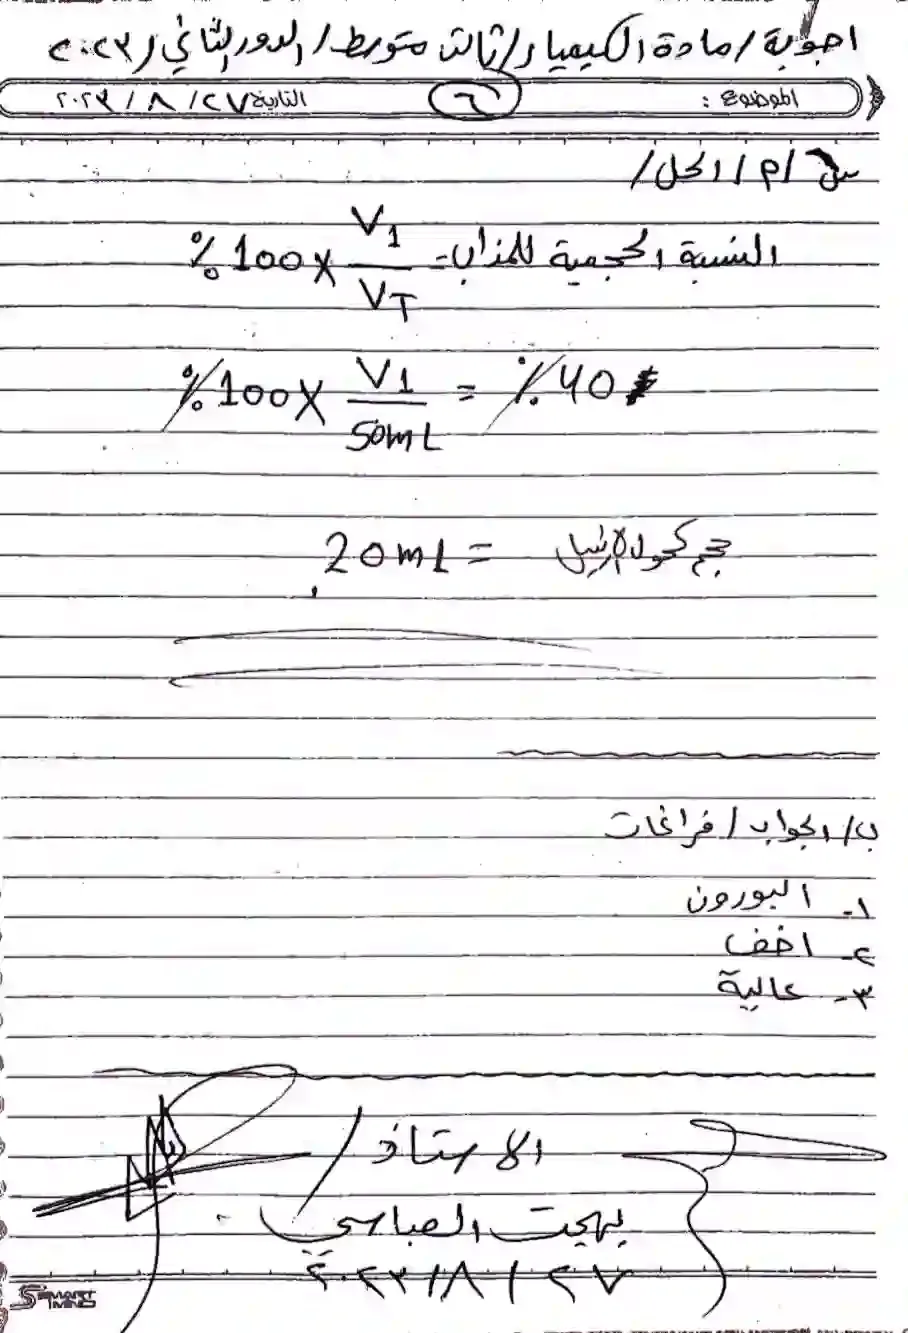 اجوبة / مادة الكيمياء / ثالث متوسط / الدور الثاني / ٢٠٢٣
الموضوع : ٦ التاريخ ٢٧ / ٨ / ٢٠٢٣
س / م / الحل /
النسبة الحجمية للمذاب = V1 / VT × 100 %
% 40 = V1 / 50mL × 100 %
حجم كحول الاثيل = 20mL
ب / الجواب / فراغات
١- البورون
٢- اخف
٣- عالية
الاستاذ /
بهجت العباسي
٢٧ / ٨ / ٢٠٢٣
SMART MIND